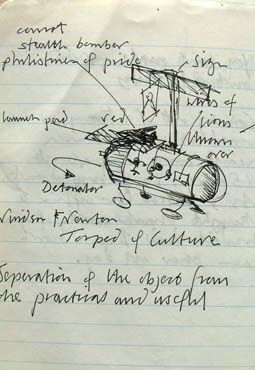 comet
stealth bomber
philistines of pride
Sign
launch pad
red
of
lions
thrown
over
Detonator
Windsor & Newton
Torped of Culture
Seperation of the object from
the practical and useful